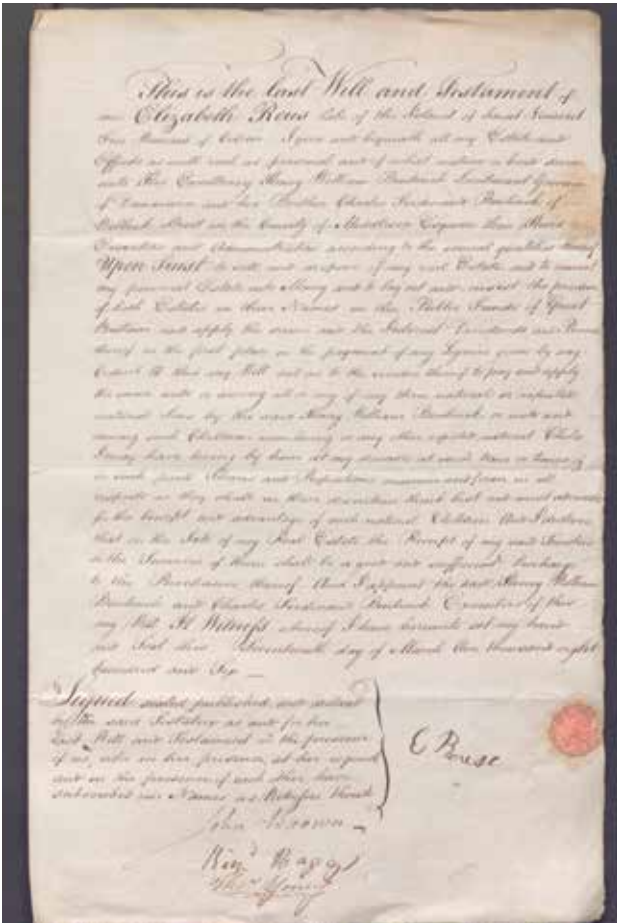 This is the last Will and Testament of
me Elizabeth Rous late of the Island of Saint Vincent
Free Woman of Colour I give and bequeath all my Estate and
Effects as well real as personal and of what nature or kind soever
unto His Excellency Henry William Bentinck Lieutenant Governor
of Demerara and his Brother Charles Ferdinand Bentinck of
Street in the County of Middlesex Esquire their Heirs
Executors and Administrators according to the several qualities thereof
Upon Trust to sell and dispose of my real Estate and to convert
my personal Estate into Money and to lay out and invest the produce
of both Estates in their Names in the Public Funds of Great
Britain and apply the same and the Interest Dividends and
thereof in the first place in the payment of any Legacies given by any
Codicil to this my Will and as to the residue thereof to pay and apply
the same unto or among all or any of my three natural or reputed
natural by the said Henry William Bentinck or unto and
among such Children and any other reputed natural Child
I may have living by him at my decease at such time or times
in such parts Shares and Proportions manner and form in all
respects as they shall in their discretion think best and most
for the benefit and advantage of such natural Children And I declare
that on the Sale of my Real Estate the Receipt of my said Trustees
or the Survivor of them shall be a good and sufficient Discharge
to the Purchaser thereof And I appoint the said Henry William
Bentinck and Charles Ferdinand Bentinck Executors of this
my Will In Witness whereof I have hereunto set my hand
and Seal this day of March One thousand eight
hundred and Six
Signed sealed published and declared
by the said Testatrix as and for her
Last Will and Testament in the presence
of us, who in her presence, at her request
and in the presence of each other have
subscribed our Names as Witnesses thereto
E Rouse
John Brown
Thos Young